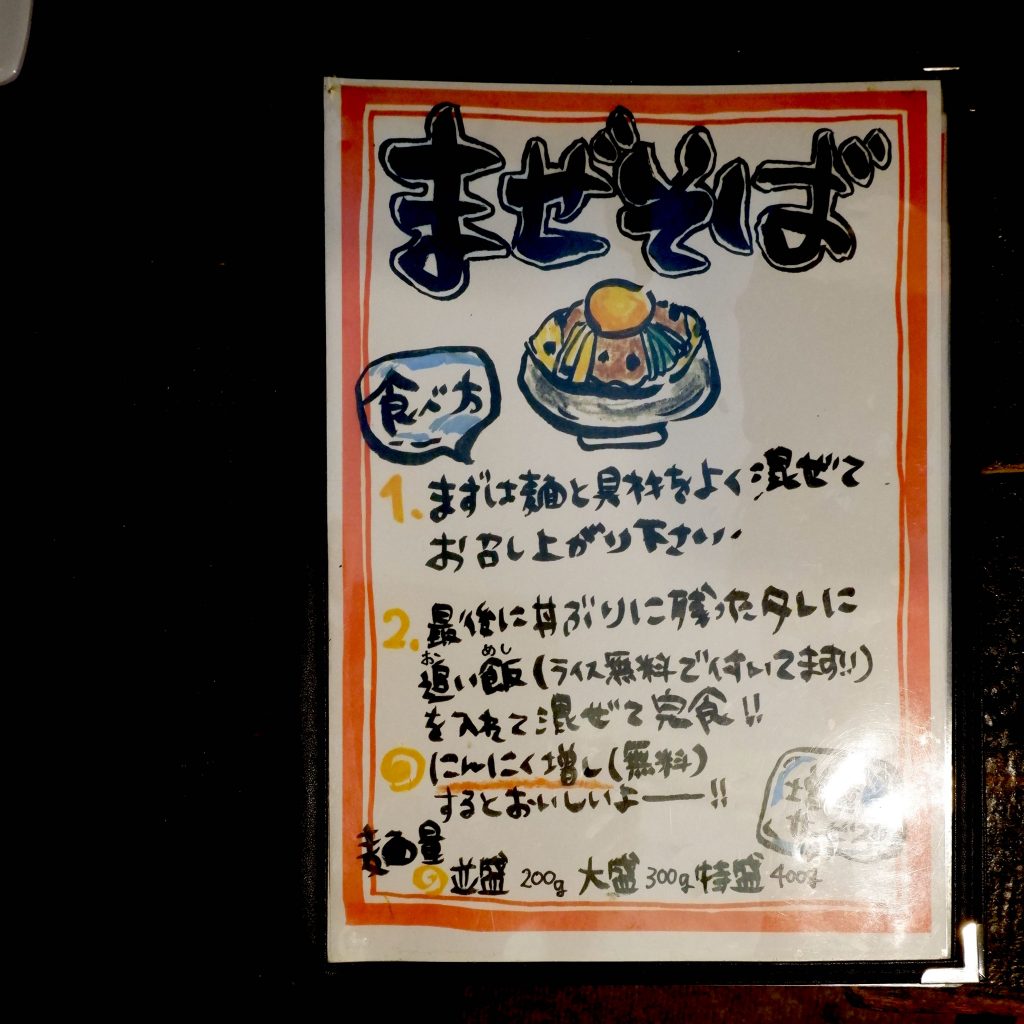 まぜそば
食べ方
1. まずは麺と具材をよく混ぜて
お召し上がり下さい。
2. 最後に丼ぶりに残ったタレに
追い飯(ライス無料で付いてます!!)
お めし
を入れて混ぜて完食!!
にんにく増し(無料)
するとおいしいよーー!!
麺量
並盛 200g 大盛 300g 特盛 400g